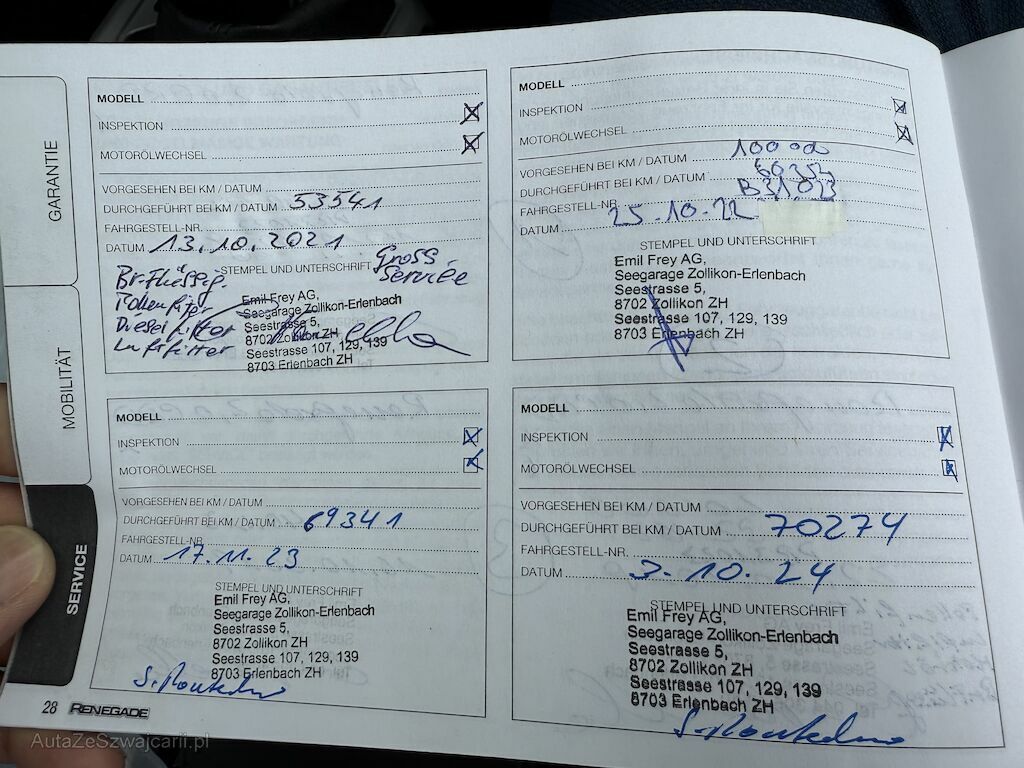 GARANTIE
MOBILITÄT
SERVICE
MODELL
INSPEKTION
MOTORÖLWECHSEL
VORGESEHEN BEI KM / DATUM
DURCHGEFÜHRT BEI KM / DATUM 53541
FAHRGESTELL-NR.
DATUM 13.10.2021
STEMPEL UND UNTERSCHRIFT
Gross Service
Br-Flüssig.
Pollenfilter
Dieselfilter
Luftfilter
Emil Frey AG,
Seegarage Zollikon-Erlenbach
Seestrasse 5,
8702 Zollikon ZH
Seestrasse 107, 129, 139
8703 Erlenbach ZH
MODELL
INSPEKTION
MOTORÖLWECHSEL
VORGESEHEN BEI KM / DATUM 100000
DURCHGEFÜHRT BEI KM / DATUM
FAHRGESTELL-NR.
DATUM 25.10.22
STEMPEL UND UNTERSCHRIFT
Emil Frey AG,
Seegarage Zollikon-Erlenbach
Seestrasse 5,
8702 Zollikon ZH
Seestrasse 107, 129, 139
8703 Erlenbach ZH
MODELL
INSPEKTION
MOTORÖLWECHSEL
VORGESEHEN BEI KM / DATUM
DURCHGEFÜHRT BEI KM / DATUM 69341
FAHRGESTELL-NR.
DATUM 17.11.23
STEMPEL UND UNTERSCHRIFT
Emil Frey AG,
Seegarage Zollikon-Erlenbach
Seestrasse 5,
8702 Zollikon ZH
Seestrasse 107, 129, 139
8703 Erlenbach ZH
MODELL
INSPEKTION
MOTORÖLWECHSEL
VORGESEHEN BEI KM / DATUM
DURCHGEFÜHRT BEI KM / DATUM 70274
FAHRGESTELL-NR.
DATUM 3.10.24
STEMPEL UND UNTERSCHRIFT
Emil Frey AG,
Seegarage Zollikon-Erlenbach
Seestrasse 5,
8702 Zollikon ZH
Seestrasse 107, 129, 139
8703 Erlenbach ZH
28 RENEGADE
AutaZeSzwajcarii.pl